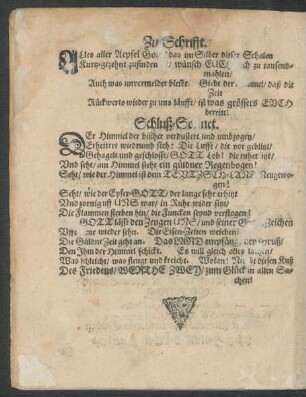 Zu-Schrifft.
ALles aller Aepfel Go das im Silber dieser Schalen
Kurtz-gezehnt zufinden wünsch EUCH ich zu tausend-
mahlen/
Auch was unvermeldet bleibt. Giebt der Himmel/ daß die
Zeit
Rückwerts wieder zu uns läufft/ ist was grössers EUCH
bereit!
Schluß-Sonnet.
DEr Himmel der bißher verdüstert und umbzogen/
Erheitert wiedrumb sich: Die Lufft/ die vor geblitzt/
Gehagelt und geschlosst/ GOTT Lob! die ruhet itzt/
Und seht/ am Himmel steht ein güldner Regenbogen!
Seht/ wie der Himmel ist dem TEUTSCHLAND
gen!
Seht/ wie der Eyfer-GOTT/ der lange sehr erhitzt
Und zornig auff UNS war/ in Ruhe wieder sitzt/
Die Flammen stecken hin/ die Funcken seynd verflogen!
GOTT lässt den Zeugen UNS/ und seiner Zeichen
wieder sehn. Die Eisen-Zeiten weichen/
Die Güldne Zeit geht an. Das LAND empfängt den Gruß/
Den Ihm der Himmel schickt. Es will gleich alles
Was schleicht/ was fleugt und kreicht. Wolan! diesen Kuß
Des Friedens/ WERTHE ZWEY/ zum Glück in allen Sa-
chen!